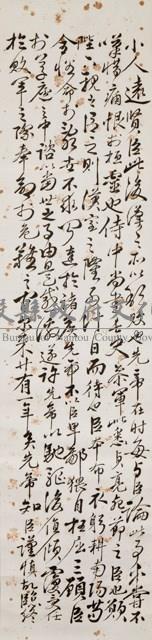 小人遠賢臣此後漢之所以傾頹也先帝在時每與臣論此事未嘗不
嘆惜痛恨於桓靈也侍中尚書長史參軍此悉貞亮死節之臣也願
陛下親之信之則漢室之隆可計日而待也臣本布衣躬耕南陽苟
全性命於亂世不求聞達於諸侯先帝不以臣卑鄙猥自枉屈三顧臣
於草廬之中諮臣以當世之事由是感激遂許先帝以馳驅後值傾覆受任
於敗軍之際奉命於危難之間爾來廿有一年矣先帝知臣謹慎故臨終
縣政府文化
County Gov